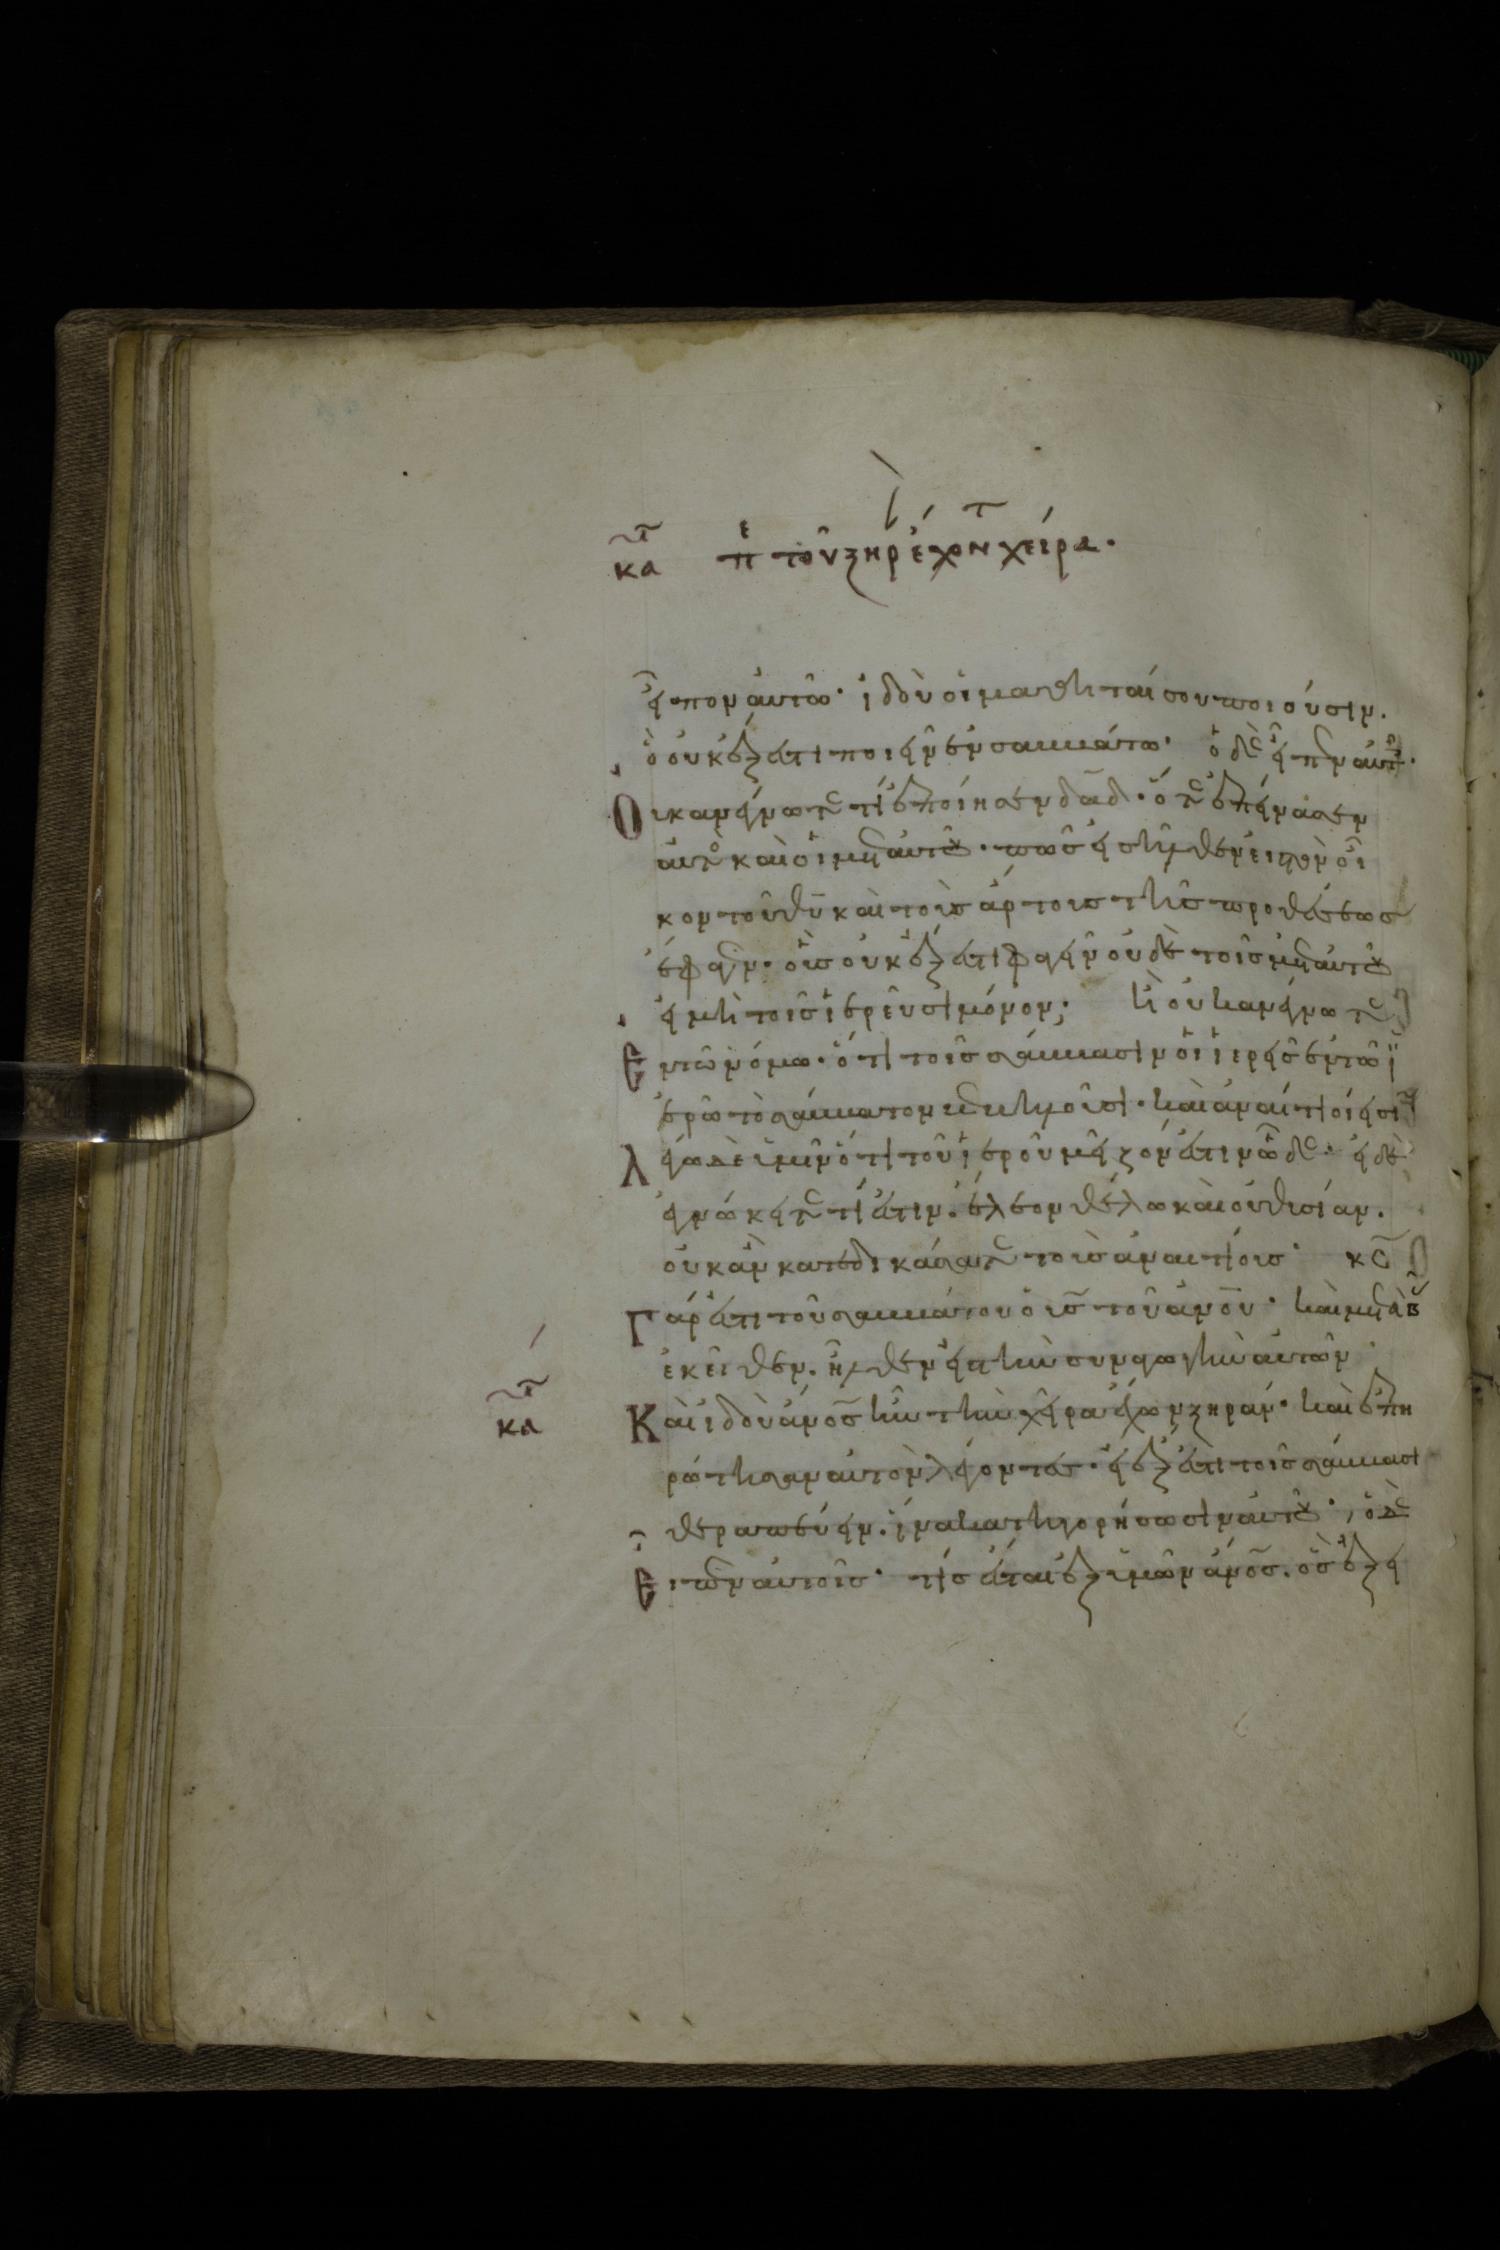 κα π τοῦ ξηρ ἔχον χεῖρα.
εἶπον αὐτῶ· ἰδοὺ οἱ μαθηταί σου ποιοῦσιν.
ὃ οὐκ ἔξεστι ποιεῖν ἐν σαββάτω· ὁ δὲ εἶπεν αὐτοῖς·
Οὐκ ἀνέγνωτε τί ἐποίησεν δαδ· ὅτε ἐπείνασεν
αὐτὸς καὶ οἱ μετ αὐτοῦ· πῶς εἰσῆλθεν εἰς τὸν οἶ
κον τοῦ θυ καὶ τοὺς ἄρτους τῆς προθέσεως
ἔφαγεν· οὓς οὐκ ἔξεστι φαγεῖν οὐδὲ τοῖς μετ αὐτοῦ
εἰ μὴ τοῖς ἱερεῦσι μόνον; ἢ οὐκ ἀνέγνωτε
Ἐν τῶ νόμω· ὅτι τοῖς σάββασιν οἱ ἱερεῖς ἐν τῶ ἱ
ερῶ τὸ σάββατον βεβηλοῦσι· καὶ ἀναίτιοί εἰσιν
λέγω δὲ ὑμῖν ὅτι τοῦ ἱεροῦ μεῖζόν ἐστιν ὧδε· εἰ δὲ
ἐγνώκειτε τί ἐστιν· ἔλεον θέλω καὶ οὐ θυσίαν.
οὐκ ἂν κατεδικάσατε τοὺς ἀναιτίους· κς
Γάρ ἐστι τοῦ σαββάτου ὁ υς τοῦ ανου· καὶ μεταβὰς
ἐκεῖθεν. ἦλθεν εἰς τὴν συναγωγὴν αὐτῶν·
κα Καὶ ἰδοὺ ανος ἦν τὴν χεῖρα ἔχων ξηράν· καὶ ἐπη
ρώτησαν αὐτὸν λέγοντες· εἰ ἔξεστι τοῖς σάββασι
θεραπεύειν. ἵνα κατηγορήσωσιν αὐτοῦ· ὁ δὲ
Εἶπεν αὐτοῖς· τίς ἔσται ἐξ ὑμῶν ανος. ὃς ἕξει